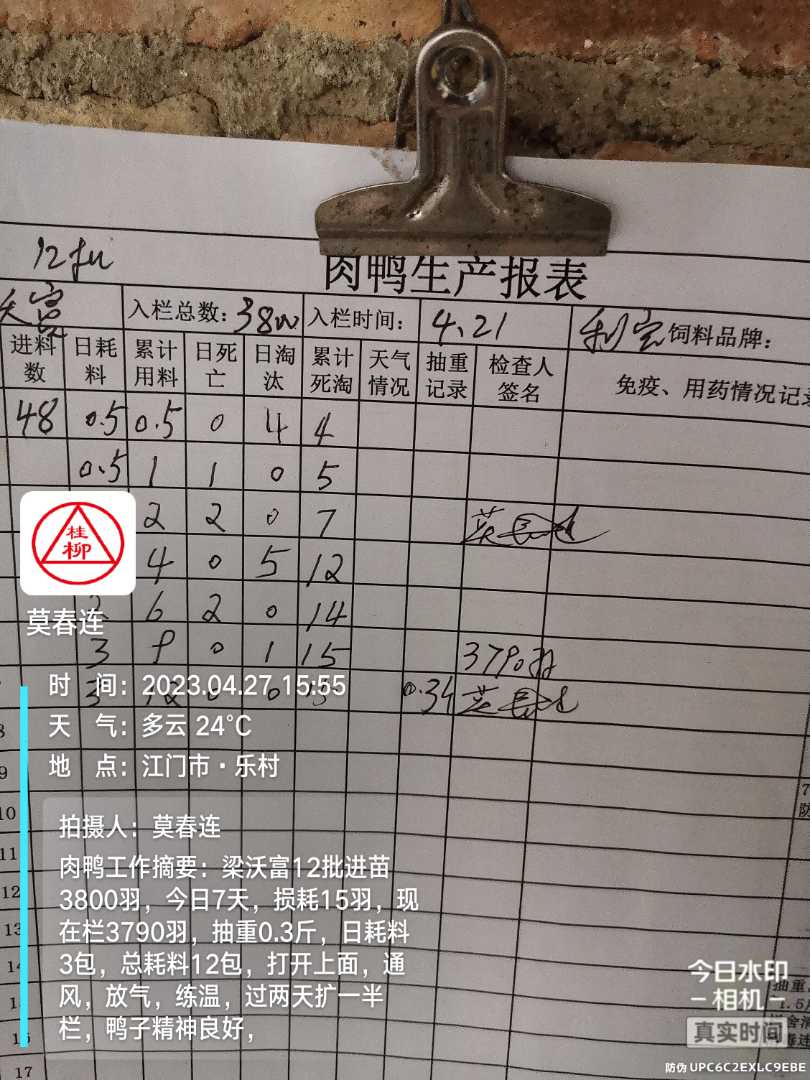 12批
肉鸭生产报表
入栏总数: 3800 入栏时间: 4.21 利宝 饲料品牌:
进料数 日耗料 累计用料 日死亡 日淘汰 累计死淘 天气情况 抽重记录 检查人签名 免疫、用药情况记录
48 0.5 0.5 0 4 4
0.5 1 1 0 5
2 2 0 7
4 0 5 12
2 6 2 0 14
3 9 0 1 15 3790羽
3 12 0 0 15 0.34
桂柳
莫春连
时 间: 2023.04.27 15:55
天 气: 多云 24℃
地 点: 江门市·乐村
拍摄人: 莫春连
肉鸭工作摘要: 梁沃富12批进苗
3800羽，今日7天，损耗15羽，现
在栏3790羽，抽重0.3斤，日耗料
3包，总耗料12包，打开上面，通
风，放气，练温，过两天扩一半
栏，鸭子精神良好，
8
9
10
11
12
13
14
15
16
17
抽重
今日水印
相机
真实时间
防伪 UPC6C2EXLC9EBE